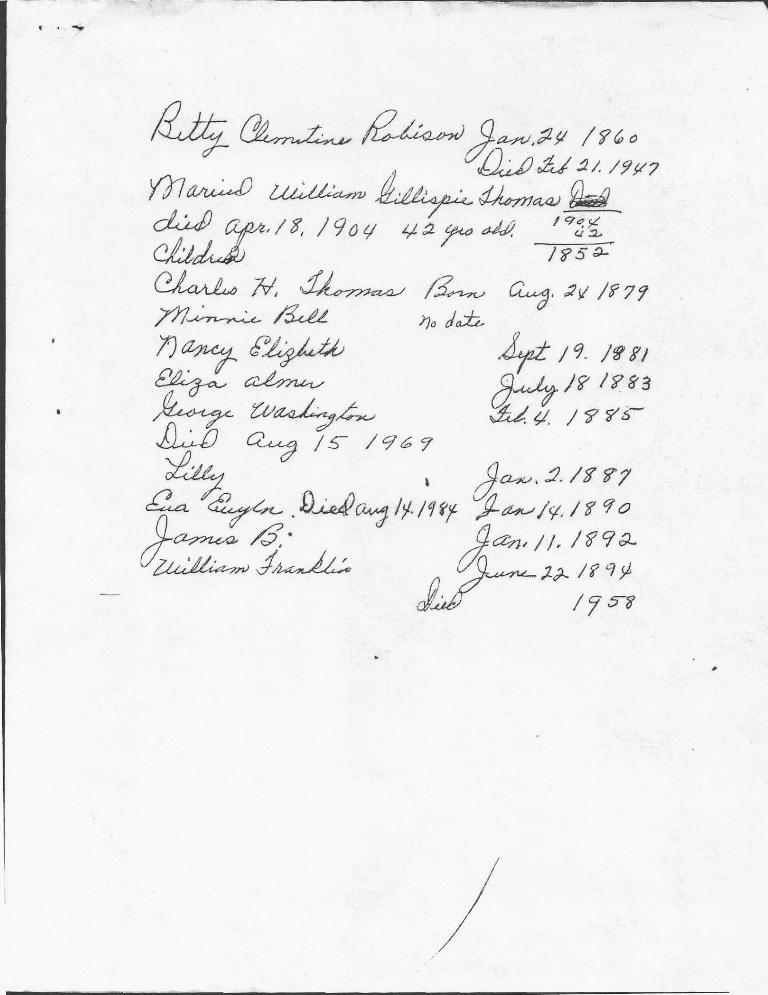 Betty Clemetine Robison Jan. 24 1860
Died Feb 21. 1947
Maried William Gillispie Thomas
died Apr. 18, 1904 42 yrs old.
1904
42
1852
Children
Charles H. Thomas Born Aug. 24 1879
Minnie Bell no date
Nancy Elizbeth Sept 19. 1881
Eliza Almer July 18 1883
George Washington Feb. 4. 1885
Died Aug 15 1969
Lilly Jan. 2. 1887
Eva Euyln. Died Aug 14. 1984 Jan 14. 1890
James B. Jan. 11. 1892
William Franklin June 22 1894
Died 1958